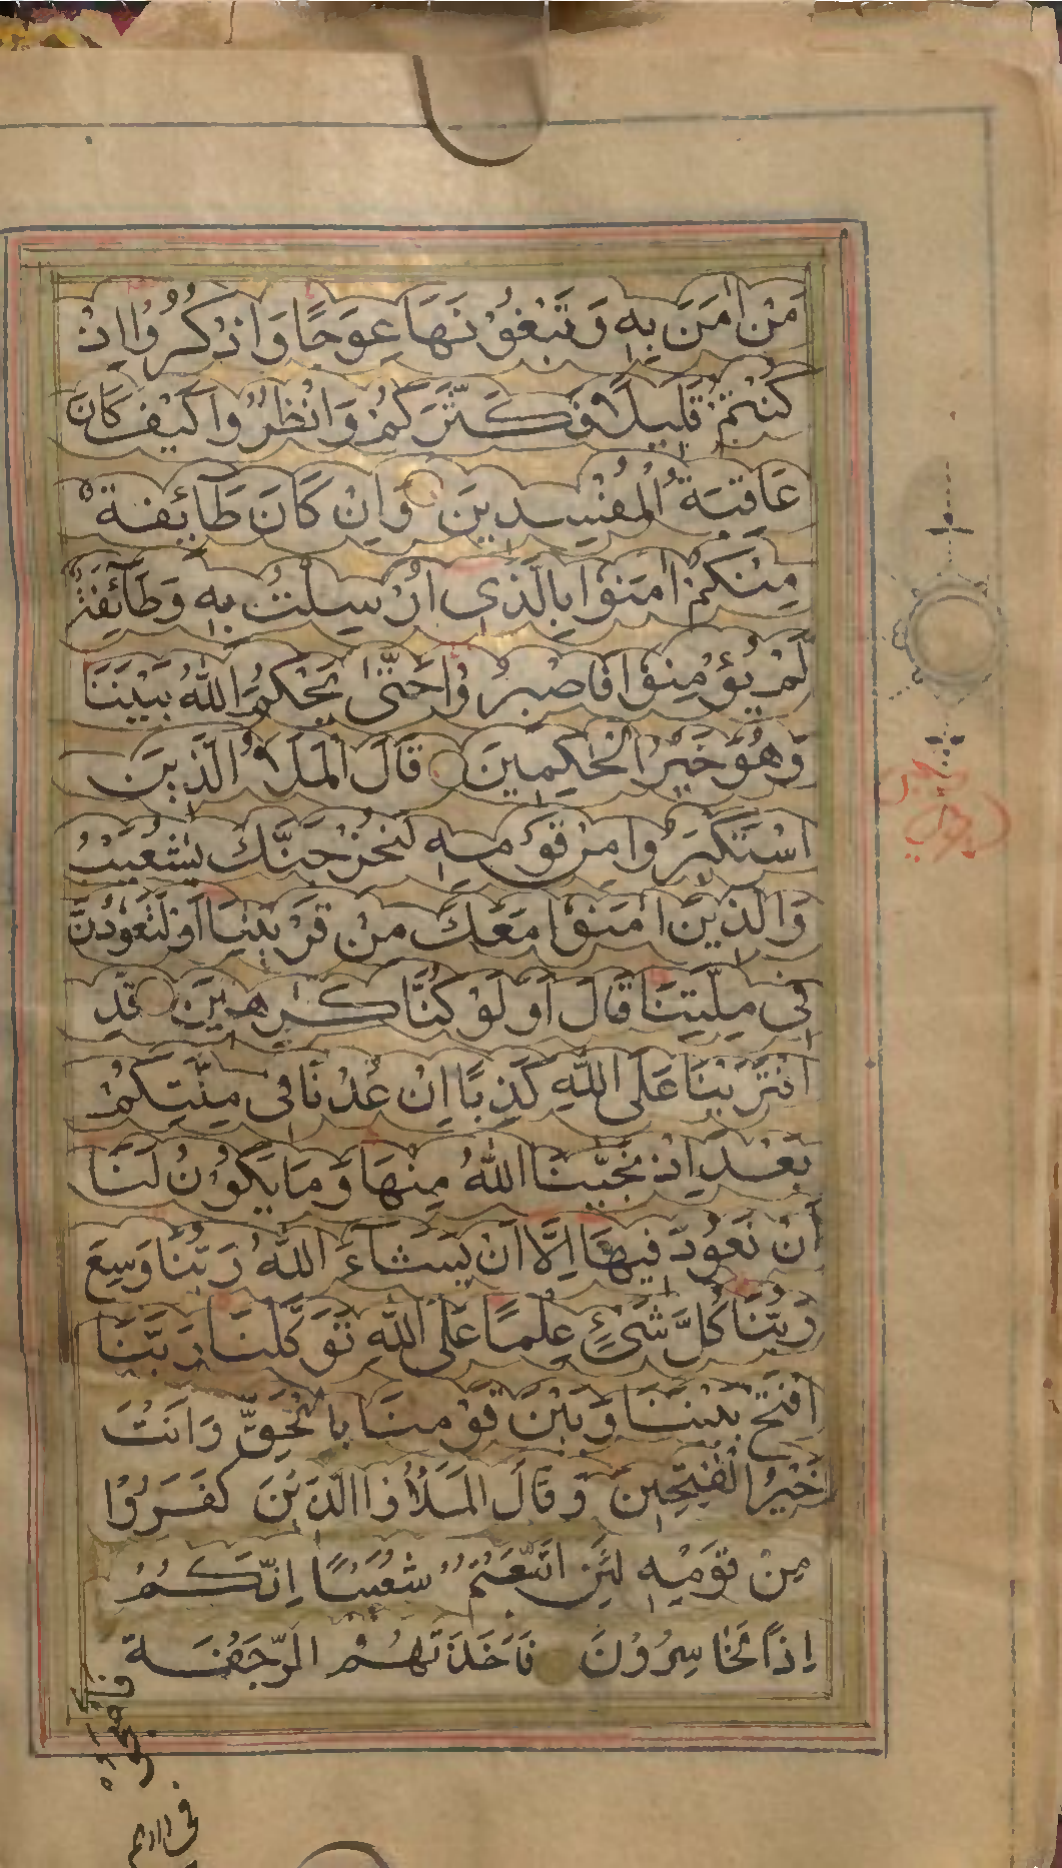 مَنْ اٰمَنَ بِهٖ وَتَبْغُوْنَهَا عِوَجًا وَاذْكُرُوْا اِذْ
كُنْتُمْ قَلِيْلًا فَكَثَّرَكُمْ وَانْظُرُوْا كَيْفَ كَانَ
عَاقِبَةُ الْمُفْسِدِيْنَ وَاِنْ كَانَ طَآئِفَةٌ
مِنْكُمْ اٰمَنُوْا بِالَّذِي اُرْسِلْتُ بِهٖ وَطَآئِفَةٌ
لَمْ يُؤْمِنُوْا فَاصْبِرُوْا حَتّٰى يَحْكُمَ اللّٰهُ بَيْنَنَا
وَهُوَ خَيْرُ الْحٰكِمِيْنَ قَالَ الْمَلَاُ الَّذِيْنَ
اسْتَكْبَرُوْا مِنْ قَوْمِهٖ لَنُخْرِجَنَّكَ يٰشُعَيْبُ
وَالَّذِيْنَ اٰمَنُوْا مَعَكَ مِنْ قَرْيَتِنَا اَوْ لَتَعُوْدُنَّ
فِي مِلَّتِنَا قَالَ اَوَلَوْ كُنَّا كٰرِهِيْنَ قَدِ
افْتَرَيْنَا عَلَى اللّٰهِ كَذِبًا اِنْ عُدْنَا فِي مِلَّتِكُمْ
بَعْدَ اِذْ نَجّٰىنَا اللّٰهُ مِنْهَا وَمَا يَكُوْنُ لَنَا
اَنْ نَعُوْدَ فِيْهَا اِلَّا اَنْ يَشَآءَ اللّٰهُ رَبُّنَا وَسِعَ
رَبُّنَا كُلَّ شَيْءٍ عِلْمًا عَلَى اللّٰهِ تَوَكَّلْنَا رَبَّنَا
افْتَحْ بَيْنَنَا وَبَيْنَ قَوْمِنَا بِالْحَقِّ وَاَنْتَ
خَيْرُ الْفٰتِحِيْنَ وَقَالَ الْمَلَاُ الَّذِيْنَ كَفَرُوْا
مِنْ قَوْمِهٖ لَئِنِ اتَّبَعْتُمْ شُعَيْبًا اِنَّكُمْ
اِذًا لَخَاسِرُوْنَ فَاَخَذَتْهُمُ الرَّجْفَةُ